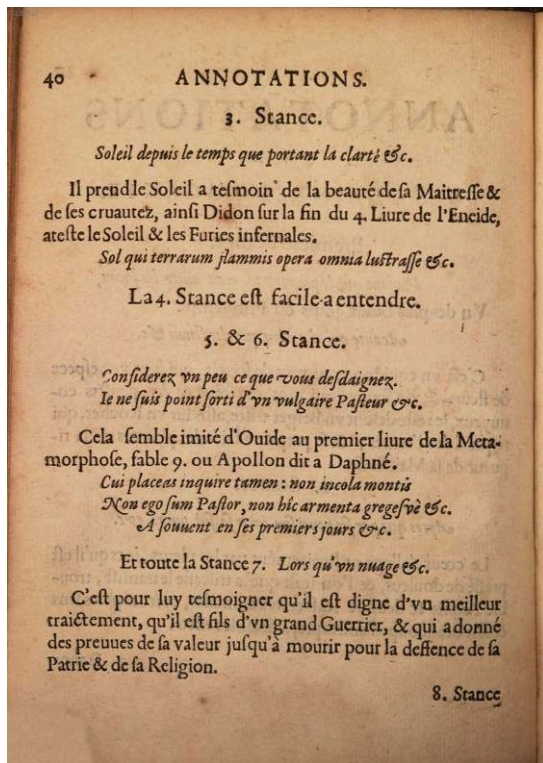 40 ANNOTATIONS.
3. Stance.
Soleil depuis le temps que portant la clarté &c.
Il prend le Soleil a tesmoin de la beauté de sa Maitresse &
de ses cruautez, ainsi Didon sur la fin du 4. Liure de l'Eneide,
ateste le Soleil & les Furies infernales.
Sol qui terrarum flammis opera omnia lustrasse &c.
La 4. Stance est facile a entendre.
5. & 6. Stance.
Considerez vn peu ce que vous desdaignez.
Ie ne suis point sorti d'vn vulgaire Pasteur &c.
Cela semble imité d'Ouide au premier liure de la Meta-
morphose, fable 9. ou Apollon dit a Daphné.
Cui placeas inquire tamen : non incola montis
Non ego sum Pastor, non hîc armenta gregesvè &c.
A souuent en ses premiers jours &c.
Et toute la Stance 7. Lors qu'vn nuage &c.
C'est pour luy tesmoigner qu'il est digne d'vn meilleur
traictement, qu'il est fils d'vn grand Guerrier, & qui a donné
des preuues de sa valeur jusqu'à mourir pour la deffence de sa
Patrie & de sa Religion.
8. Stance